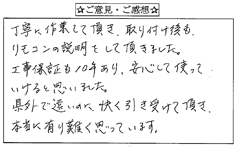 ☆ご意見・ご感想☆
丁寧に作業して頂き、取り付け後も、
リモコンの説明をして頂きました。
工事保証も10年あり、安心して使って
いけると思いました。
県外で遠いのに、快く引き受けて頂き、
本当に有り難く思っています。